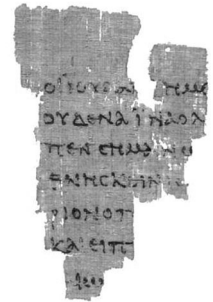 ΟΙ ΙΟΥΔΑΙ ΗΜΕ
ΟΥΔΕΝΑ ΙΝΑ ΟΛ
ΠΕΝ CΗΜΑΙΝΩ
ΘΝΗCΚΕΙΝ
ΡΙΟΝ Ο Π
ΚΑΙ ΕΙΠ